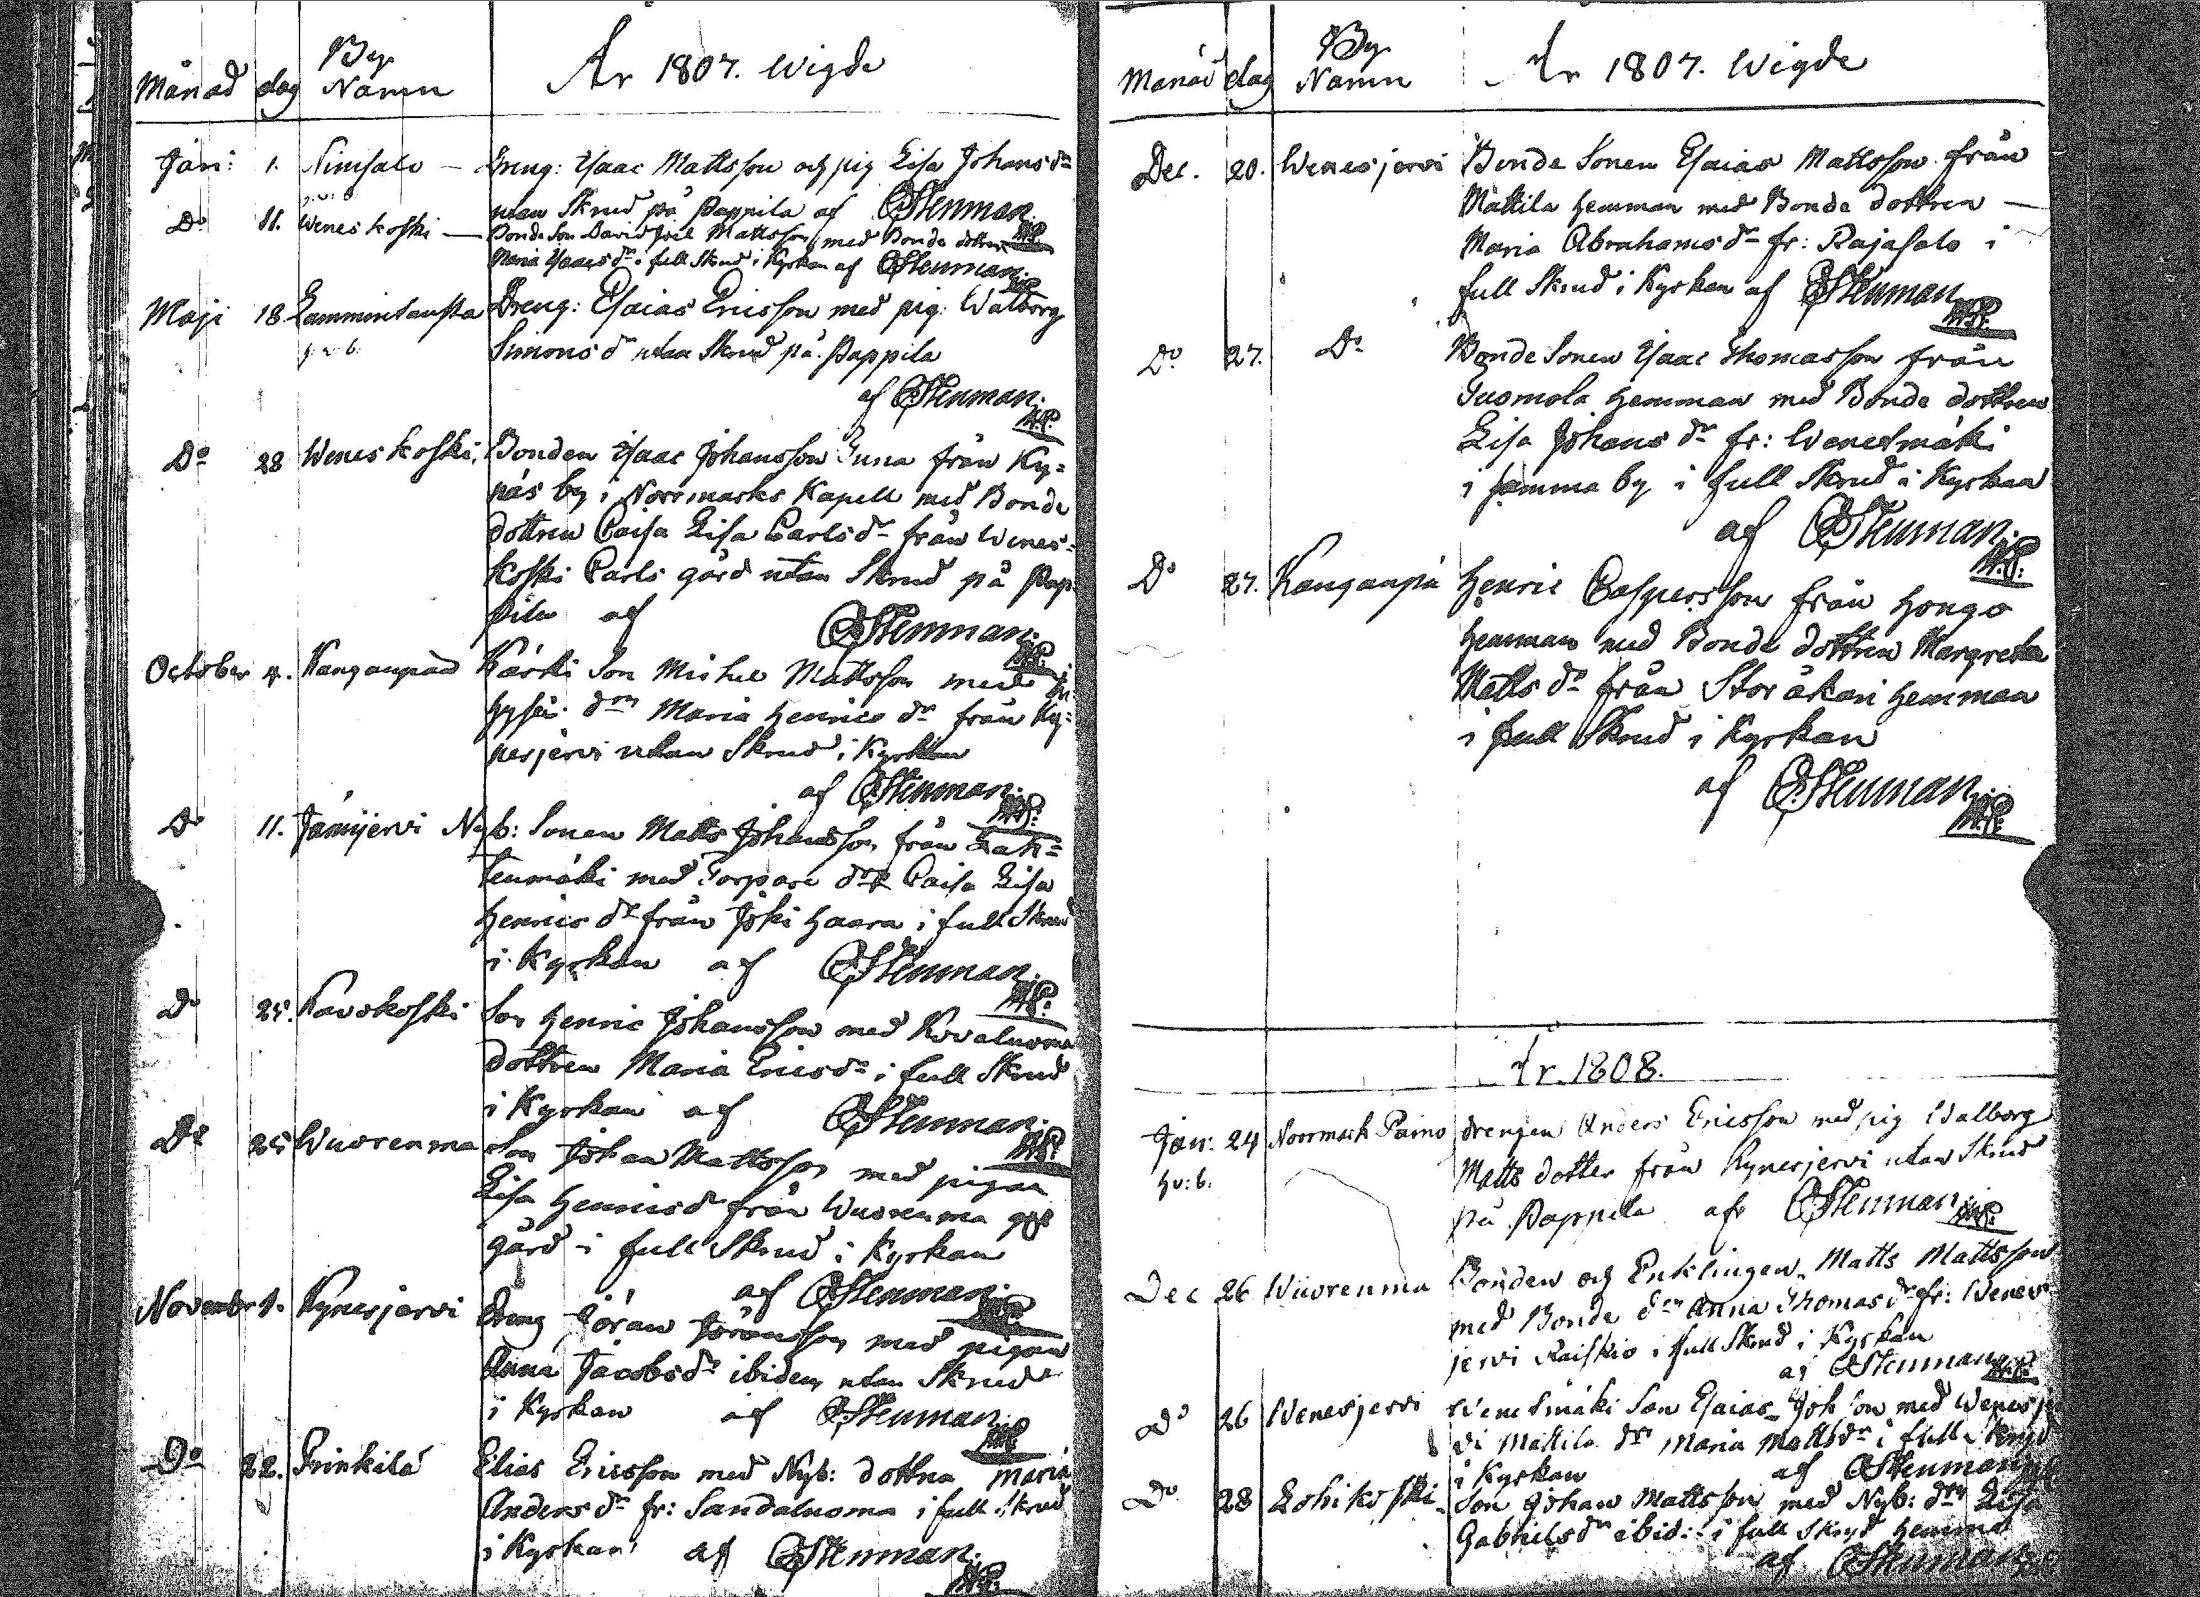 Månad dag By Namn År 1807. Wigde
Jan: 1. Nimsalo — Dreng: Isaac Mattsson och pig Lisa Johans dr
utan Skrud på Pappila af CStenman.
Do 11. Weneskoski — Bonde Son David Joel Mattsson med Bonde dottren
Maria Isaacs dr i full Skrud i Kyrkan af CStenman.
Maji 18 Lamminkausta Dreng: Esaias Ericsson med pig: Walborg
h. v: b: Simons dr utan Skrud på Pappila
af CStenman.
Do 28 Weneskoski. Bonden Isaac Johansson Juna från Ky=
näs by i Norrmarks Kapell med Bonde
dottren Caisa Lisa Carls dr från Wenes=
koski Carls gård utan Skrud på Pap
pila af CStenman.
October 4. Kanganpää Kärki Son Michel Mattsson med
dren Maria Henrics dr från Ky=
nesjervi utan Skrud i Kyrkan
af CStenman.
Do 11. Jämijervi Nyb: Sonen Matts Johansson från Lah=
tenmäki med Torpare dr Caisa Lisa
Henrics dr från Jokihaara i full Skrud
i Kyrkan af CStenman.
Do 25. Kavokoski Son Henric Johansson med Kovaluoma
dottren Maria Erics dr i full Skrud
i Kyrkan af CStenman.
Do 25 Wuorenma Son Johan Mattsson med pigan
Lisa Henrics d från Wuorenma
gård i full Skrud i Kyrkan
af CStenman.
Novembr 1. Kynesjervi Dreng Jöran Jöransson med pigan
Anna Jacobs dr ibidem utan Skrud
i Kyrkan af CStenman.
Do 22. Prinkilä Elias Ericsson med Nyb: dottna Maria
Anders dr fr: Sandaluoma i full Skrud
i Kyrkan af CStenman.
Månad dag By Namn År 1807. Wigde
Dec. 20. Wenesjervi Bonde Sonen Esaias Mattsson från
Mattila Hemman med Bonde dottren —
Maria Abrahams dr fr: Rajasalo i
full Skrud i Kyrkan af CStenman
Do 27. Do Bonde Sonen Isaac Thomasson från
Tuomola Hemman med Bonde dottren
Lisa Johans dr fr: Wenesmäki
i samma by i full Skrud i Kyrkan
af CStenman.
Do 27. Kanganpä Henric Caspersson från Hongo
Hemman med Bonde dottren Margreta
Matts dr från Storåkari Hemman
i full Skrud i Kyrkan
af CStenman.
År 1808.
Jan: 24 Norrmark Paino drengen Anders Ericsson med pig Walborg
hv: b. Matts dotter från Kynesjervi utan Skrud
på Pappila af CStenman
Dec 26 Wuorenma Bonden och Enklingen Matts Mattsson
med Bonde dren Anna Thomas dr fr: Wenes
jervi Raiskio i full Skrud i Kyrkan
af CStenman
Do 26 Wenesjervi Wenesmäki Son Esaias Joh son med Wenesje
vi Mattila dr Maria Matts dr i full Skrud
i Kyrkan af CStenman
Do 28 Lohikoski Son Johan Mattsson med Nyb: dren Lisa
Gabriels dr ibid: i full Skrud hemma
af CStenman